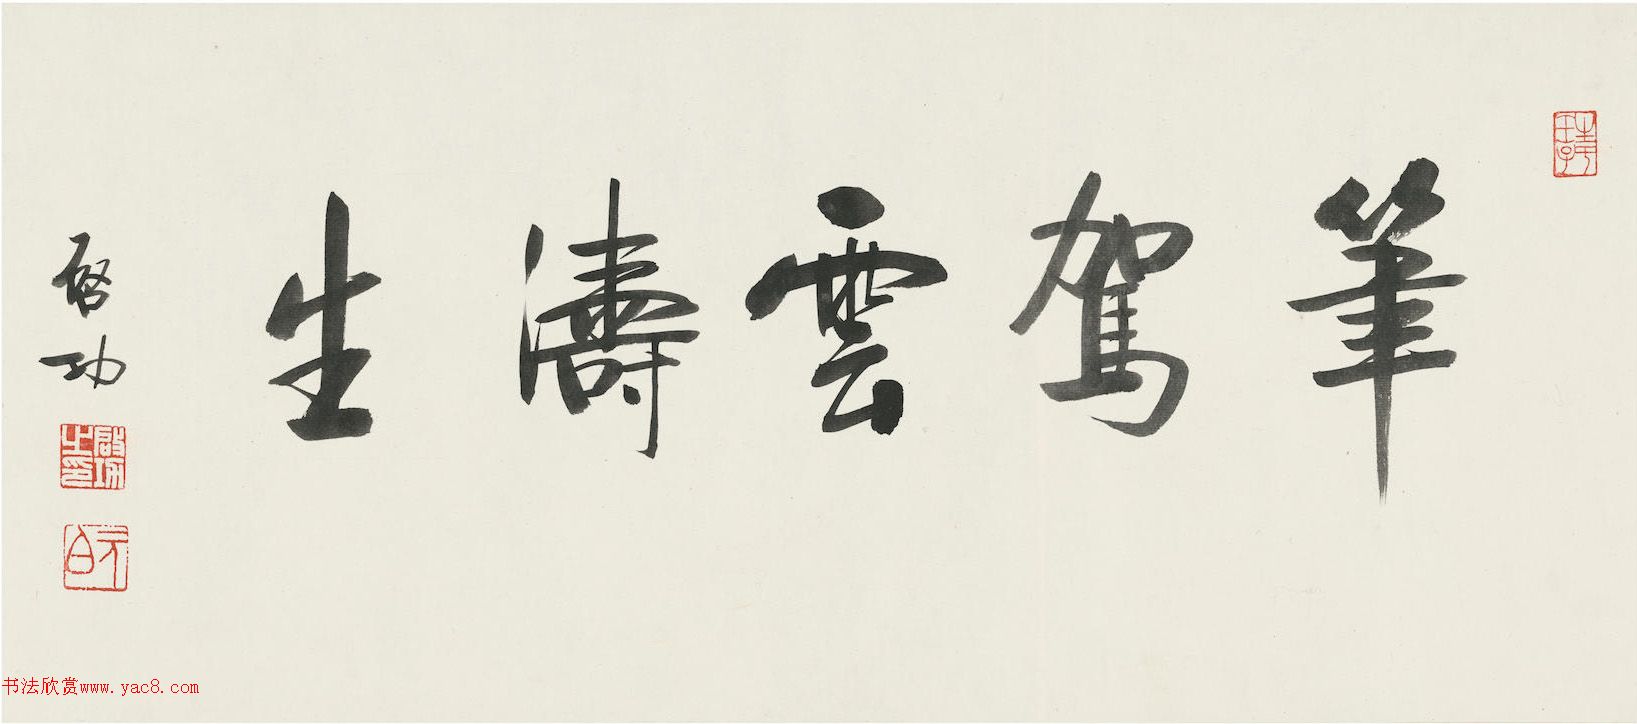 筆駕雲濤生
啓功
啟功之印
元白
书法欣赏www.yac8.com